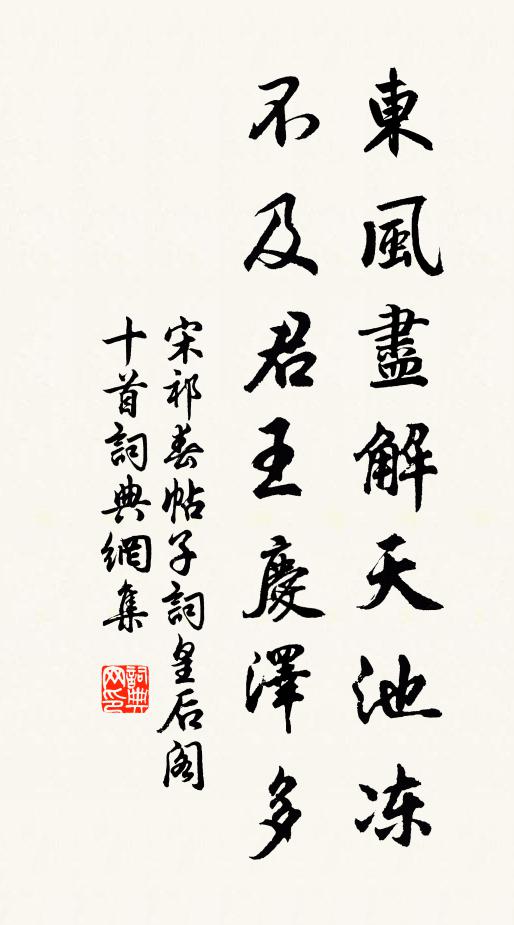 東風盡解天池冻
不及君王慶澤多
宋祁春帖子詞皇后阁
十首詞典網集
詞典
网印